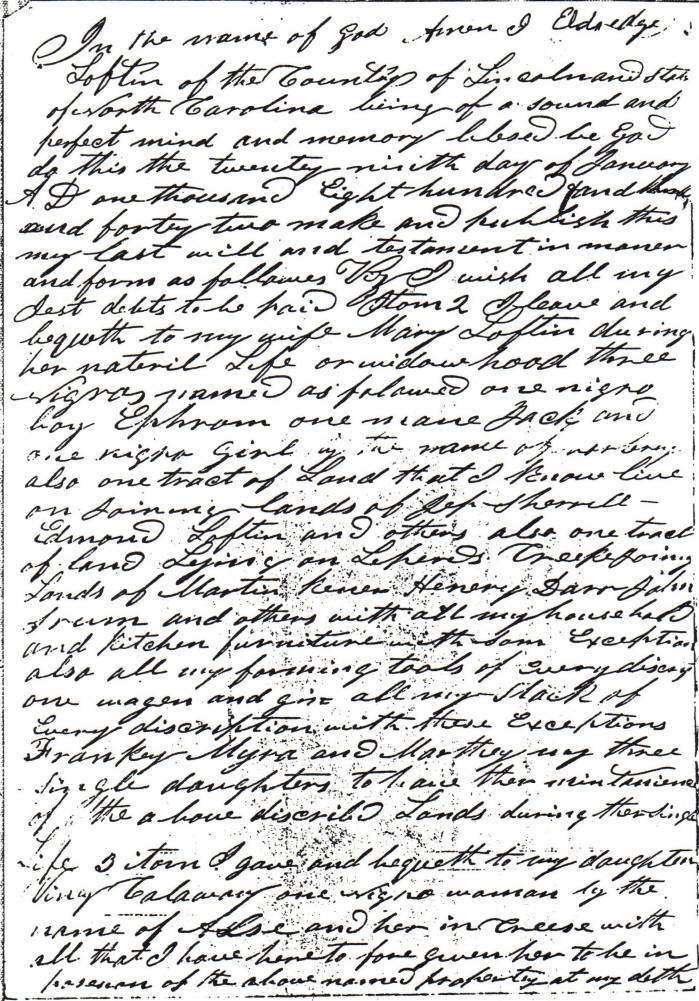 In the name of God Amen I Eldredge
Loftin of the County of Lincoln and state
of North Carolina being of a sound and
perfect mind and memory blesed be God
do this the twenty ninth day of January
A D one thousand Eight hundred and
and forty two make and publish this
my last will and testament in maner
and form as followes I wish all my
Jest debts to be paid Itom 2 I leave and
bequeth to my wife Mary Loftin during
her nateril Life or widowhood three
Nigros named as folowed one nigro
boy Ephrom one mane Jack and
one nigro Girl by the name of
also one tract of Land that I know live
on Joining lands of Jep Sherrill -
Edmond Loftin and others also one tract
of land Lying on Leperds Creek Joing
Lands of Martin Kener Henery Darr John
and others with all my house hold
and kitchen furniture with som Exception
also all my forming tools of every discrp
one wagen and gin all my Stack of
Every discription with these Exceptions
Frankey Myra and Marthey my three
Single daughters to have ther mintanience
of the above discribd Lands during ther Single
Life 3 itom I gave and bequeth to my daughter
Viney Calaway one nigro woman by the
name of Alse and her in Creese with
all that I have here to fore given her to be in
posesion of the above named property at my deth